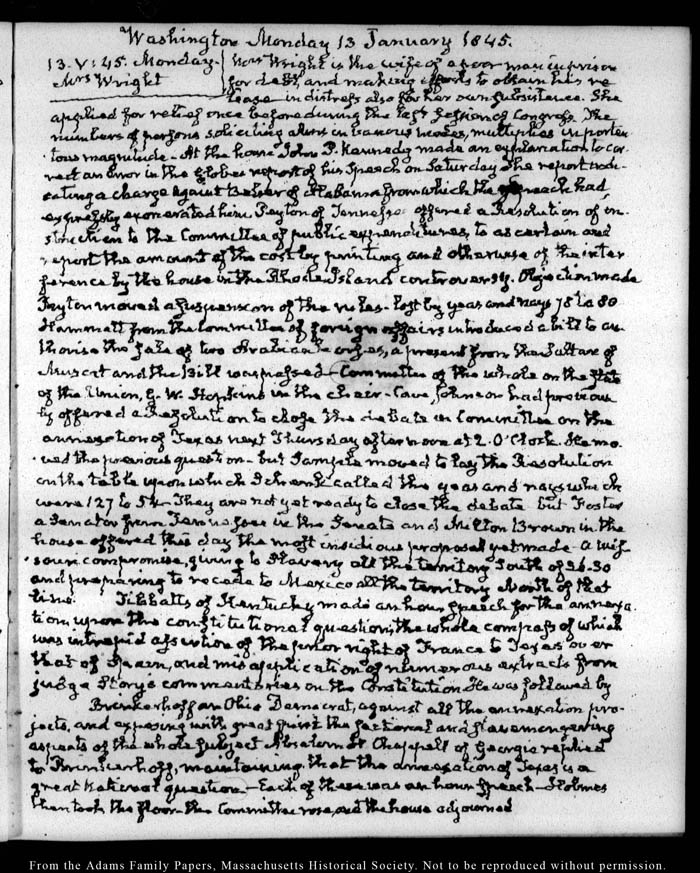 Washington Monday 13 January 1845.
13. V: 45. Monday. Mrs Wright is the wife of a poor man in prison
Mrs Wright for debt, and making efforts to obtain his re
lease in distress also for her own subsistence. She
applied for relief once before during the last Session of Congress. The
numbers of persons soliciting alms in various modes, multiplies in porten
tous magnitude - At the house John P. Kennedy made an explanation to cor
rect an error in the Globes report of his Speech on Saturday. The report indi
cating a charge against Belser of Alabama from which the Speech had
expressly exonerated him. Peyton of Tennessee offered a Resolution of in
struction to the Committee of public expenditures, to ascertain and
report the amount of the cost by printing and otherwise of the inter
ference by the house in the Rhode Island controversy. Objection made
Peyton moved a suspension of the rules - lost by yeas and nays 78 to 80
Hammett from the Committee of foreign affairs introduced a bill to au
thorise the sale of two Arabian horses, a present from the Sultan of
Muscat and the Bill was passed - Committee of the whole on the state
of the Union, G. W. Hopkins in the chair - Cave Johnson had previous
ly offered a Resolution to close the debate in Committee on the
annexation of Texas next Thursday afternoon at 2. O'Clock. He mo
ved the previous question - but Sample moved to lay the Resolution
on the table upon which Schenck called the yeas and nays which
were 127 to 54 - They are not yet ready to close the debate but Foster
a Senator from Tennessee in the Senate and Milton Brown in the
house offered this day the most insidious proposal yet made - A Mis
souri compromise, giving to Slavery all the territory South of 36.30
and preparing to recede to Mexico all the territory North of that
line. Tibbatts of Kentucky made an hour speech for the annexa
tion, upon the constitutional question, the whole compass of which
was intrepid assertion of the prior right of France to Texas over
that of Spain, and misapplication of numerous extracts from
judge Story's commentaries on the Constitution. He was followed by
Brinkerhoff an Ohio Democrat, against all the annexation pro
jects, and exposing with great spirit the sectional and slavemongering
aspects of the whole subject. Absalom H. Chappell of Georgia replied
to Brinkerhoff, maintaining that the annexation of Texas is a
great National question - Each of these was an hour Speech - Holmes
then took the floor - the Committee rose, and the house adjourned
From the Adams Family Papers, Massachusetts Historical Society. Not to be reproduced without permission.